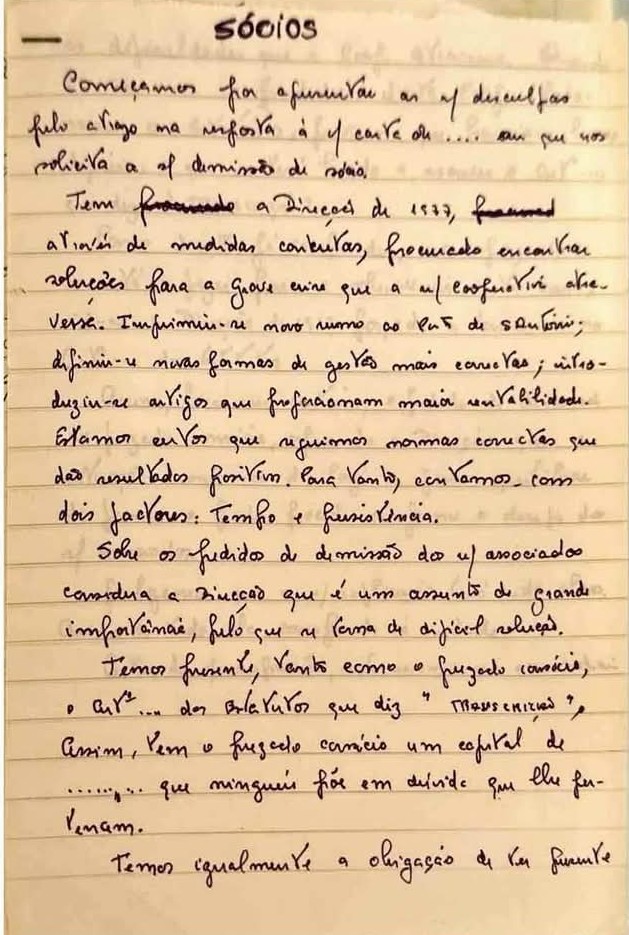 — SÓCIOS
Começamos por apresentar as n/ desculpas
pelo atrazo na resposta à v/ carta de .... em que nos
solicita a s/ demissão de sócio.
Tem procurado a Direcção de 1977,
através de medidas concretas, procurado encontrar
soluções para a grave crise que a n/ cooperativa atra-
vessa. Imprimiu-se novo rumo ao de S. António;
definiu-se novas formas de gestão mais correctas; intro-
duziu-se artigos que proporcionam maior rentabilidade.
Estamos certos que seguimos normas correctas que
dão resultados positivos. Para tanto, contamos com
dois factores: Tempo e persistência.
Sobre os pedidos de demissão dos n/ associados
considera a Direcção que é um assunto de grande
importância, pelo que se torna de difícil solução.
Temos presente, tanto como o prezado consócio,
o artº... dos Estatutos que diz " TRANSCRIÇÃO ",
Assim, tem o prezado consócio um capital de
......,.. que ninguém põe em dúvida que lhe per-
tençam.
Temos igualmente a obrigação de ter presente